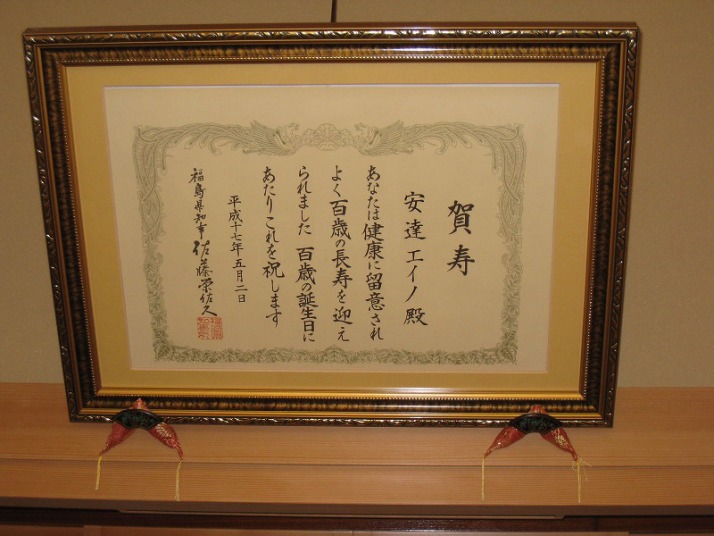 賀寿
安達エイノ殿
あなたは健康に留意され
よく百歳の長寿を迎え
られました 百歳の誕生日に
あたりこれを祝します
平成十七年五月二日
福島県知事 佐藤栄佐久